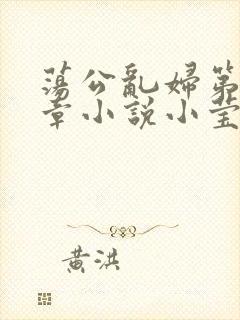 蕩公亂婦第
章小說小莹
黃洪